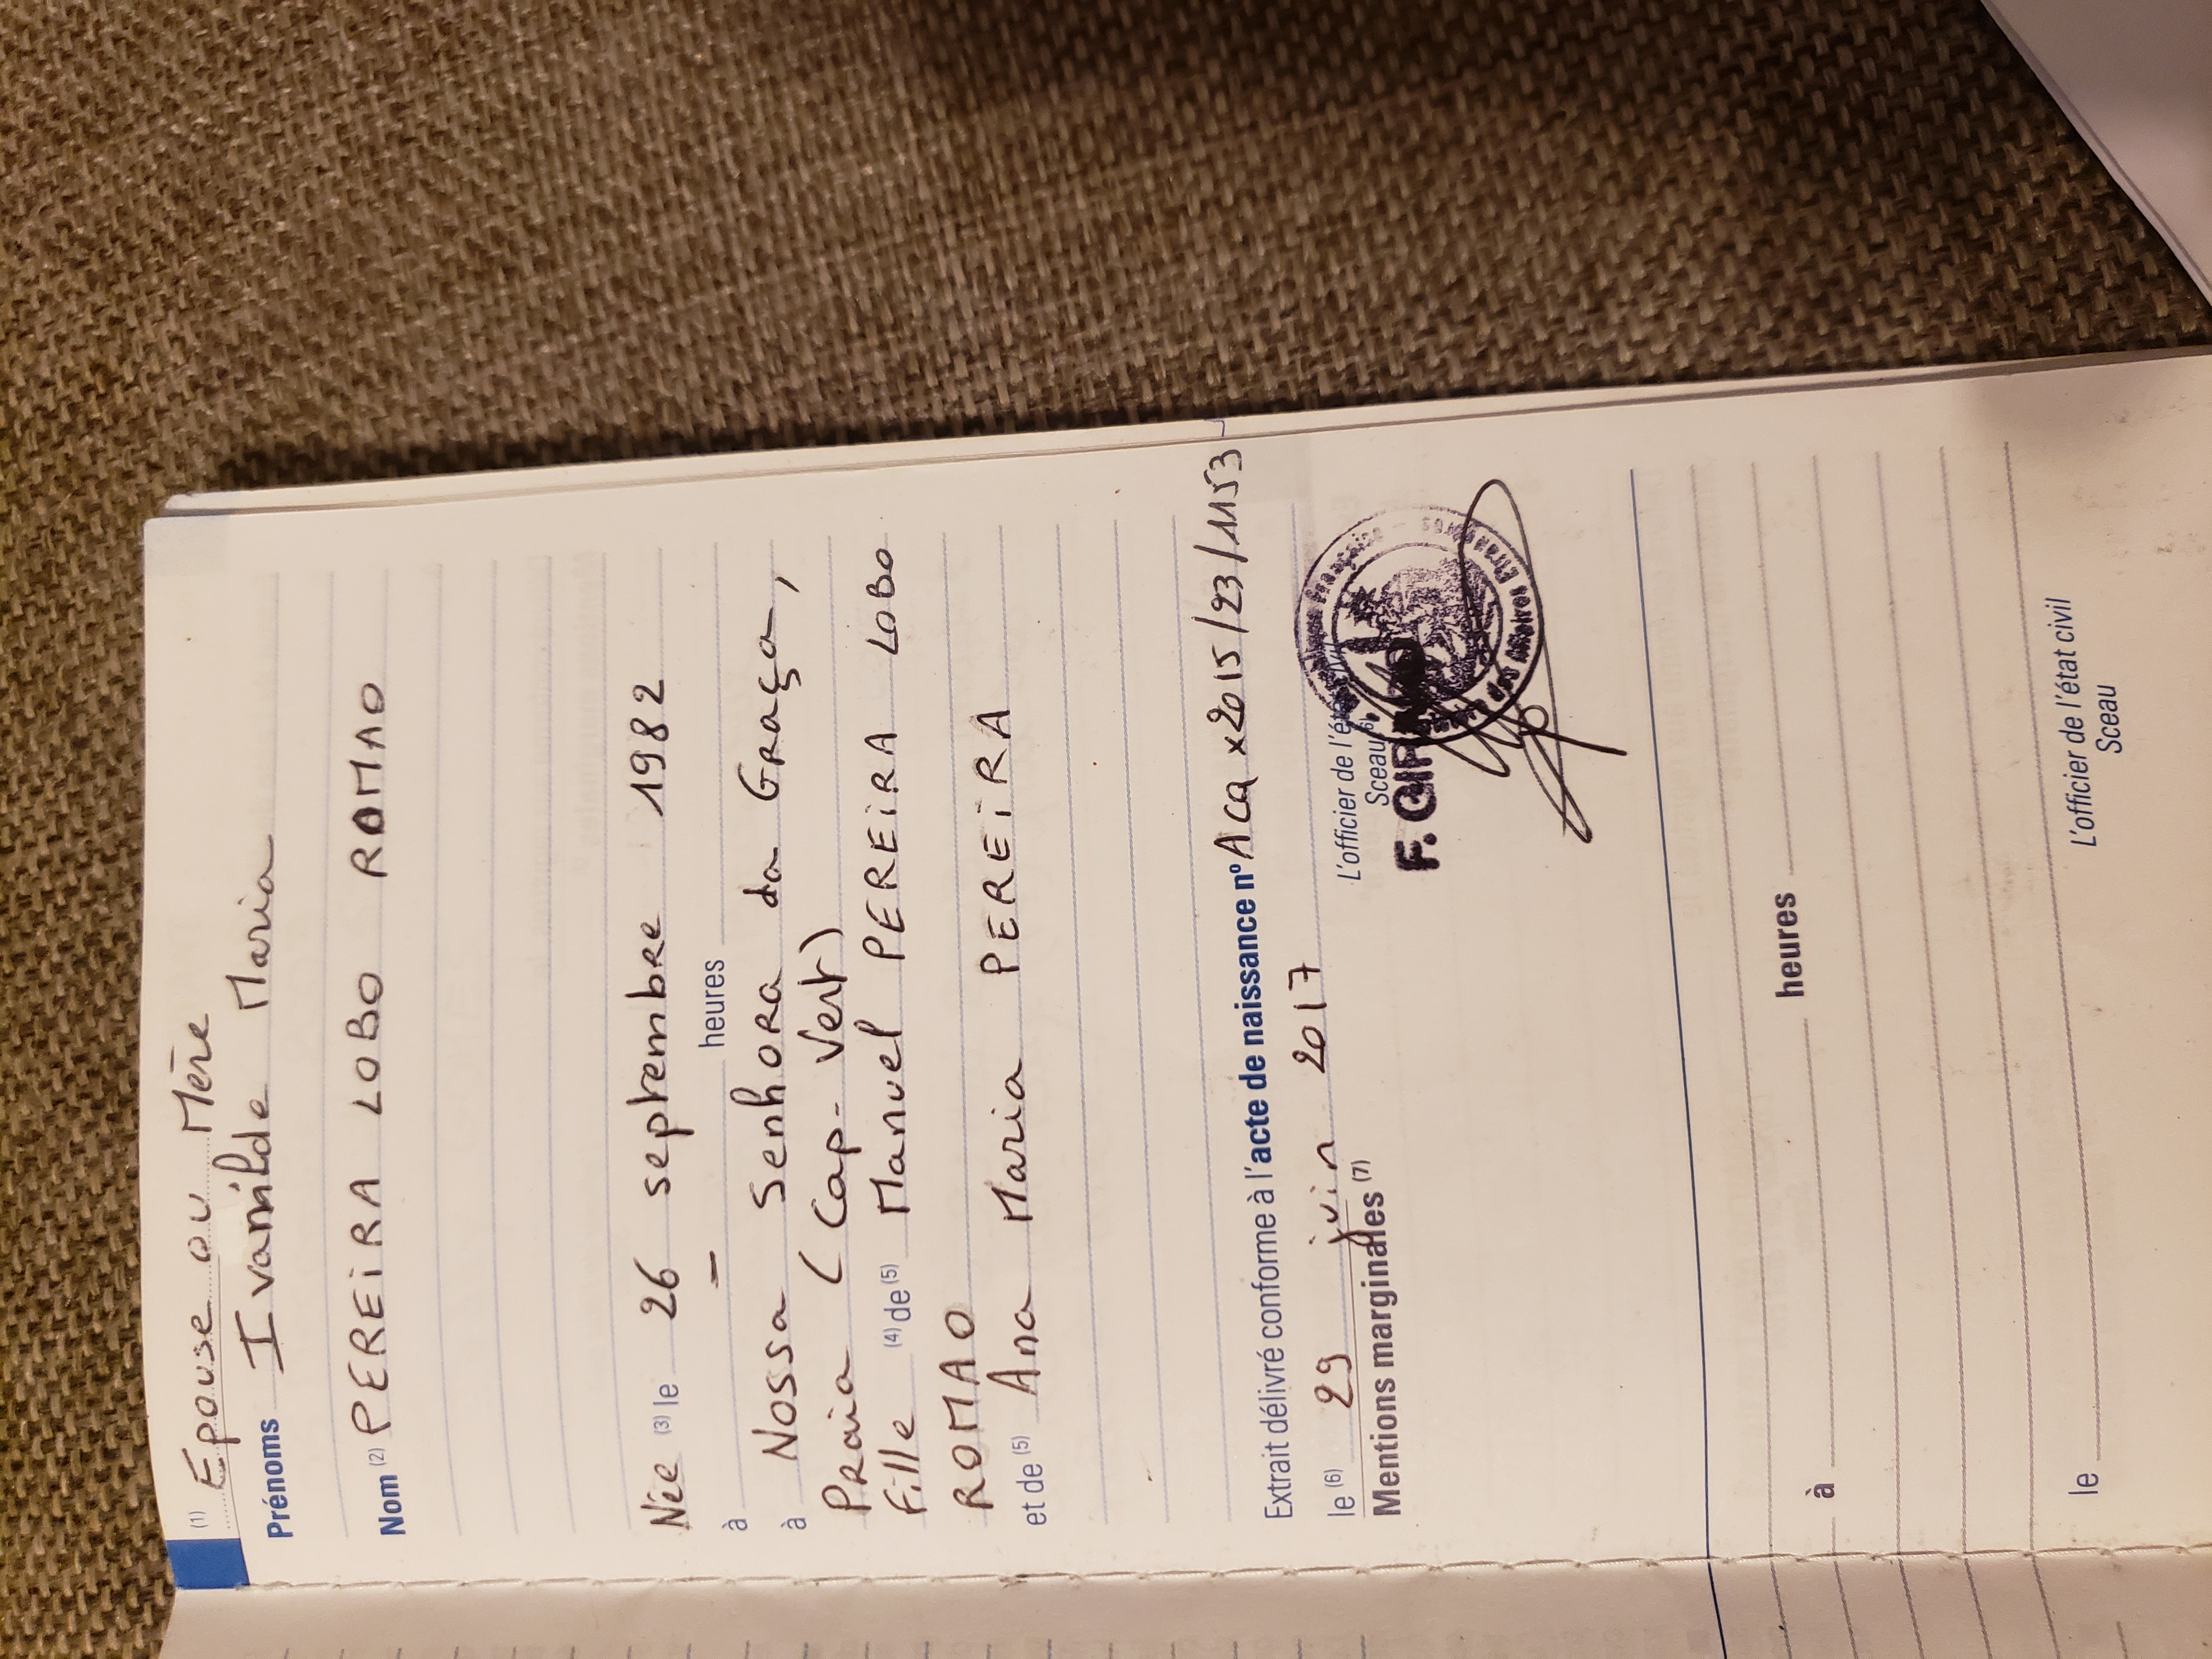 (1) Epouse ou Mère
Prénoms Ivanilde Maria
Nom (2) PEREiRA LOBO ROMAO
Née (3) le 26 septembre 1982
à — heures
à Nossa Senhora da Graça,
Praia (Cap-Vert)
Fille (4) de (5) Manuel PEREiRA LOBO
ROMAO
et de (5) Ana Maria PEREiRA
Extrait délivré conforme à l'acte de naissance n° Acq x 2015/23/1153
le (6) 29 juin 2017
L'officier de l'ét
Sceau (6)
F.
Mentions marginales (7)
à heures
le
L'officier de l'état civil
Sceau